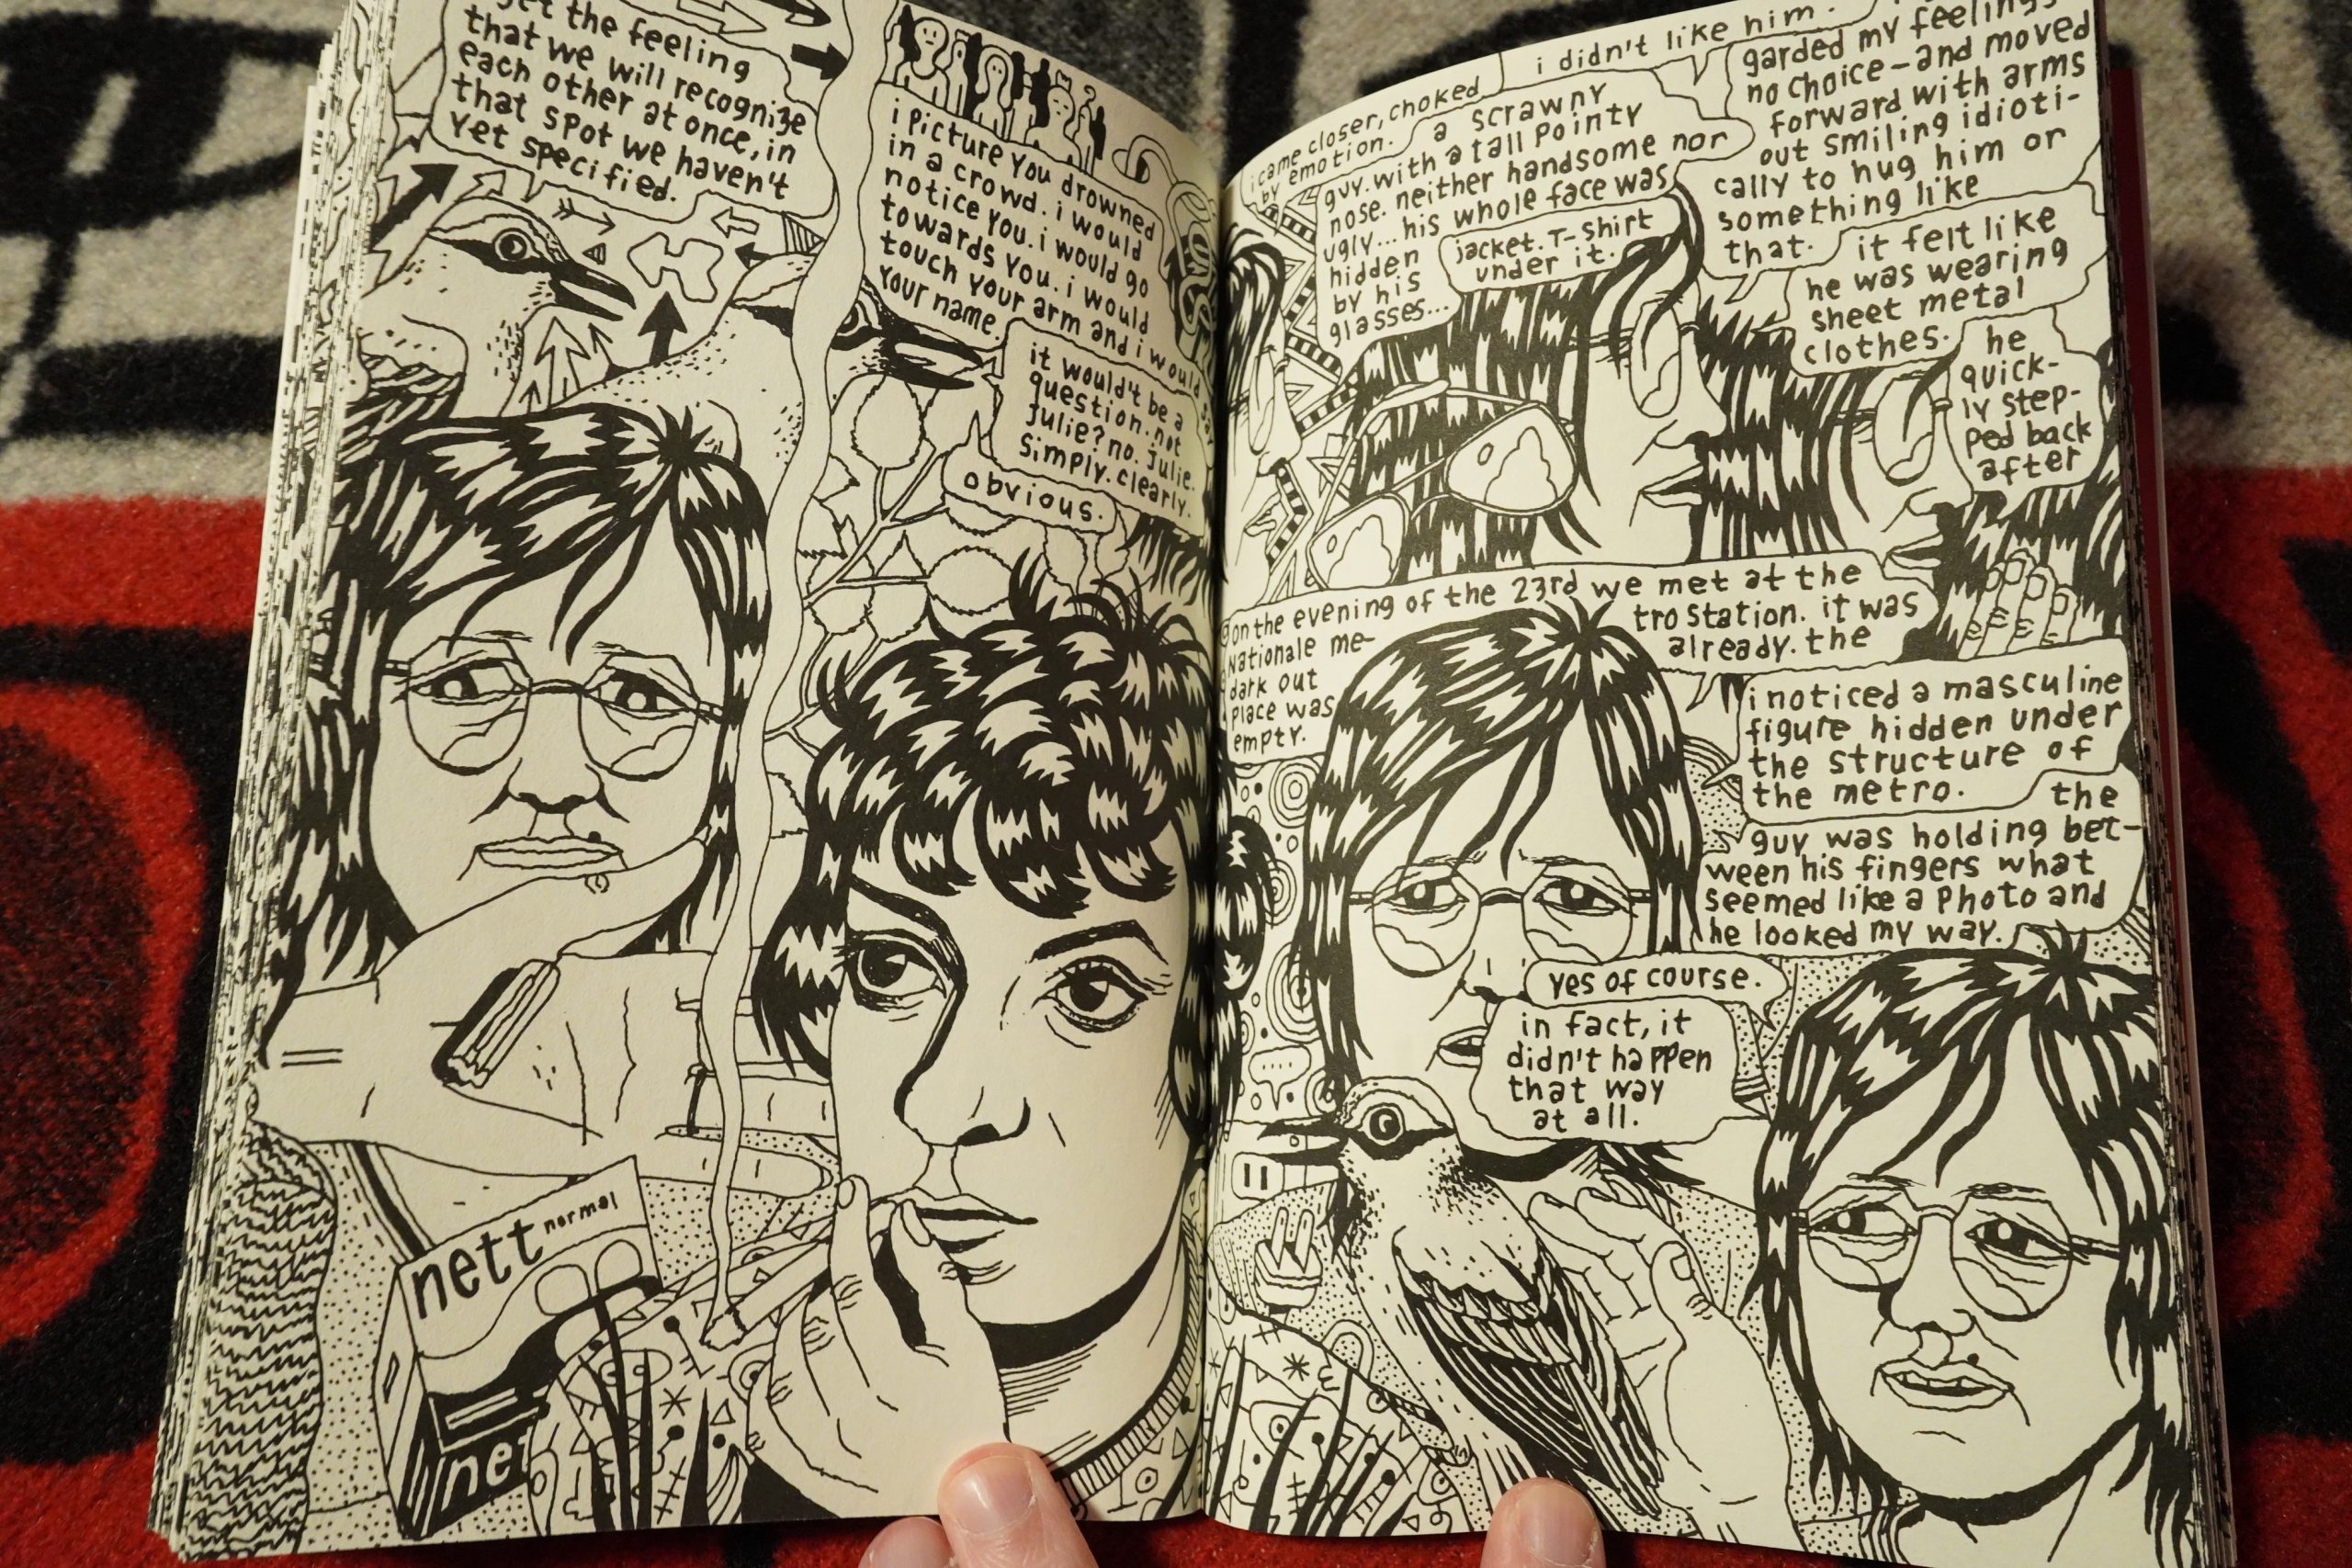 get the feeling
that we will recognize
each other at once, in
that spot we haven't
yet specified.
i picture you drowned
in a crowd. i would
notice you. i would go
towards you. i would
touch your arm and i would say
your name.
it would't be a
question. not
julie? no. julie.
simply. clearly.
obvious.
nett normal
ne
i came closer, choked
by emotion.
i didn't like him.
a scrawny
guy. with a tall pointy
nose. neither handsome nor
ugly... his whole face was
hidden
by his
glasses...
jacket. T-shirt
under it.
garded my feelings
no choice – and moved
forward with arms
out smiling idioti-
cally to hug him or
something like
that.
it felt like
he was wearing
sheet metal
clothes.
he
quick-
ly step-
ped back
after
on the evening of the 23rd we met at the
Nationale me-
tro station. it was
already. the
dark out
place was
empty.
i noticed a masculine
figure hidden under
the structure of
the metro.
the
guy was holding bet-
ween his fingers what
seemed like a photo and
he looked my way.
yes of course.
in fact, it
didn't happen
that way
at all.